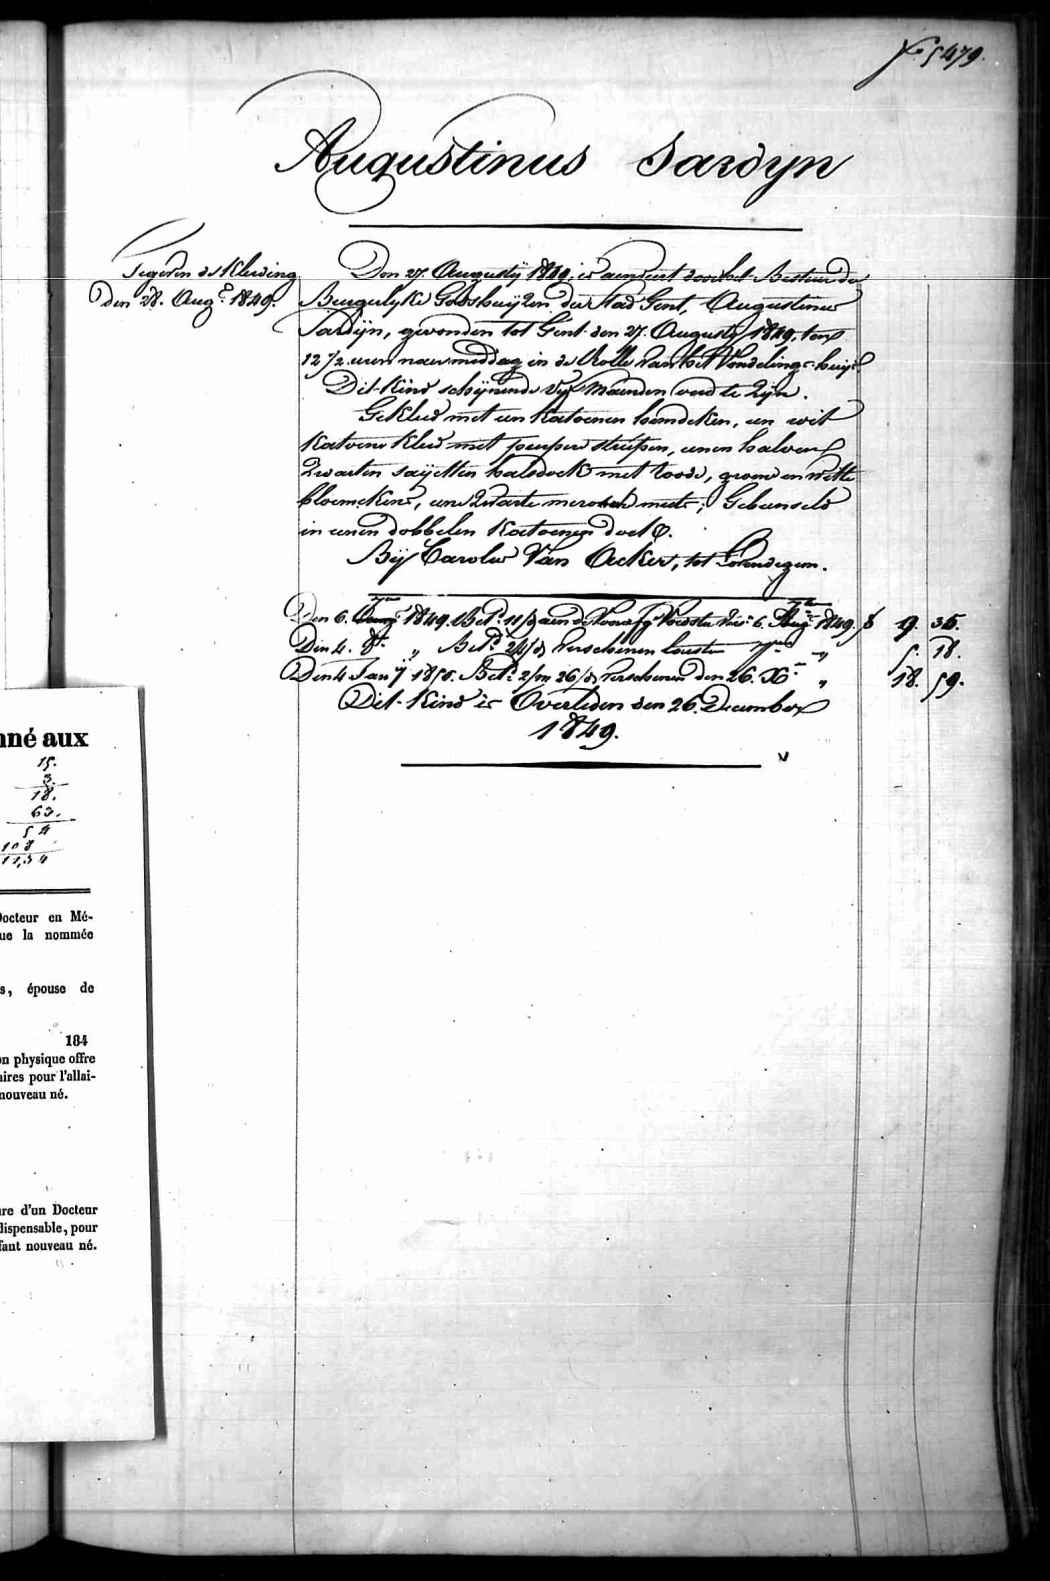 f° 5479.
Augustinus Sardyn
Tegoedn de Kleeding
den 28. Aug.s 1849.
Den 27. Augusty 1849, is aenveirt door het Bestuer der
Burgerlyke Godshuijzen der stad Gent, Augustinus
Sardijn, gevonden tot Gent den 27. Augusty 1849, ten
12 1/2 uren naermiddag in de Rolle van het Vondelings-huijs
Dit Kind schijnende vyf Maenden oud te zijn.
Gekleed met een Katoenen hemdeken, een wit
Katoene Kleed met peirpere streepen, eenen halven
Zwarten saijetten halsdoek met roode, groene en witte
bloemekens, eene Zwarte meronnen muts; Gebunseld
in eenen dobbelen Katoenen doek &.
Bij Carolus Van Acker, tot Lovendegem.
Den 6. 7.er 1849. Bet.d 11/d aen de Voorsz. Voedster Vers. 6. 7.er 1849. f 9. 35.
Den 4. 8.r „ Bet.d 24/d verschenen lesten 7.er „ 5. 18.
Den 4 Jan.y 1850. Bet.d 2/m 26/d verschenen den 26. X.r „ 18. 59.
Dit Kind is Overleden den 26. December
1849.
nné aux
15.
3.
18.
63.
54
108
11,34
Docteur en Mé-
ue la nommée
s, épouse de
184
on physique offre
aires pour l'allai-
nouveau né.
ure d'un Docteur
dispensable, pour
fant nouveau né.